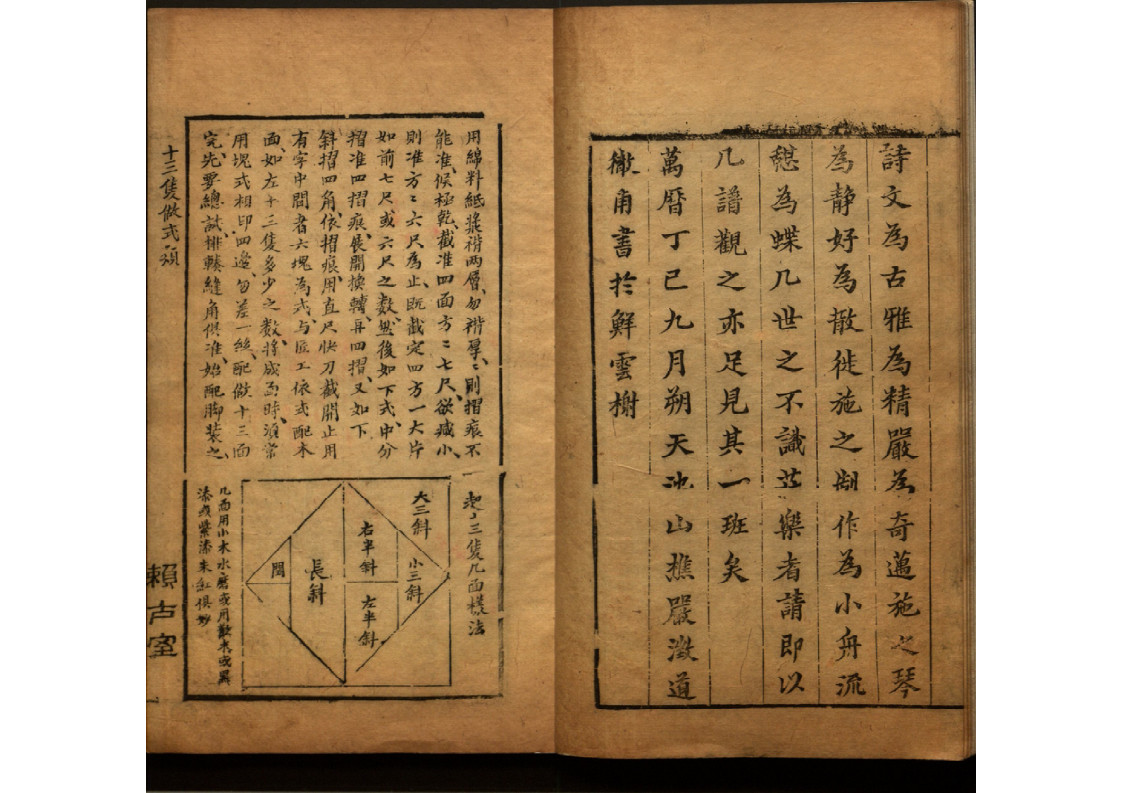 詩文為古雅為精嚴為奇邁施之琴
為靜好為散徙施之制作為小舟流
憩為蝶几世之不識苙樂者請即以
几譜觀之亦足見其一班矣
萬曆丁巳九月朔天池山樵嚴澂道
澈甫書於鮮雲榭
起十三隻几面樣法
用綿料紙漿褙兩層勿褙厚〻則摺痕不
能准候極乾截准四面方〻七尺欲減小
則准方〻六尺為止既截定四方一大片
如前七尺或六尺之數然後如下式中分
摺准四摺痕展開換轉再四摺又如下
斜摺四角依摺痕用直尺快刀截開止用
有字中間者六塊為式与匠工依式配木
面如左十三隻多少之數將成面時須常
用塊式相印四邊勿差一絲配做十三面
完先要總試排輳縫角俱准始配脚裝之
大三斜
小三斜
右半斜
左半斜
長斜
閏
几面用小木水磨或用歙漆或黑
漆或紫漆朱紅俱妙
十三隻做式須
賴古室